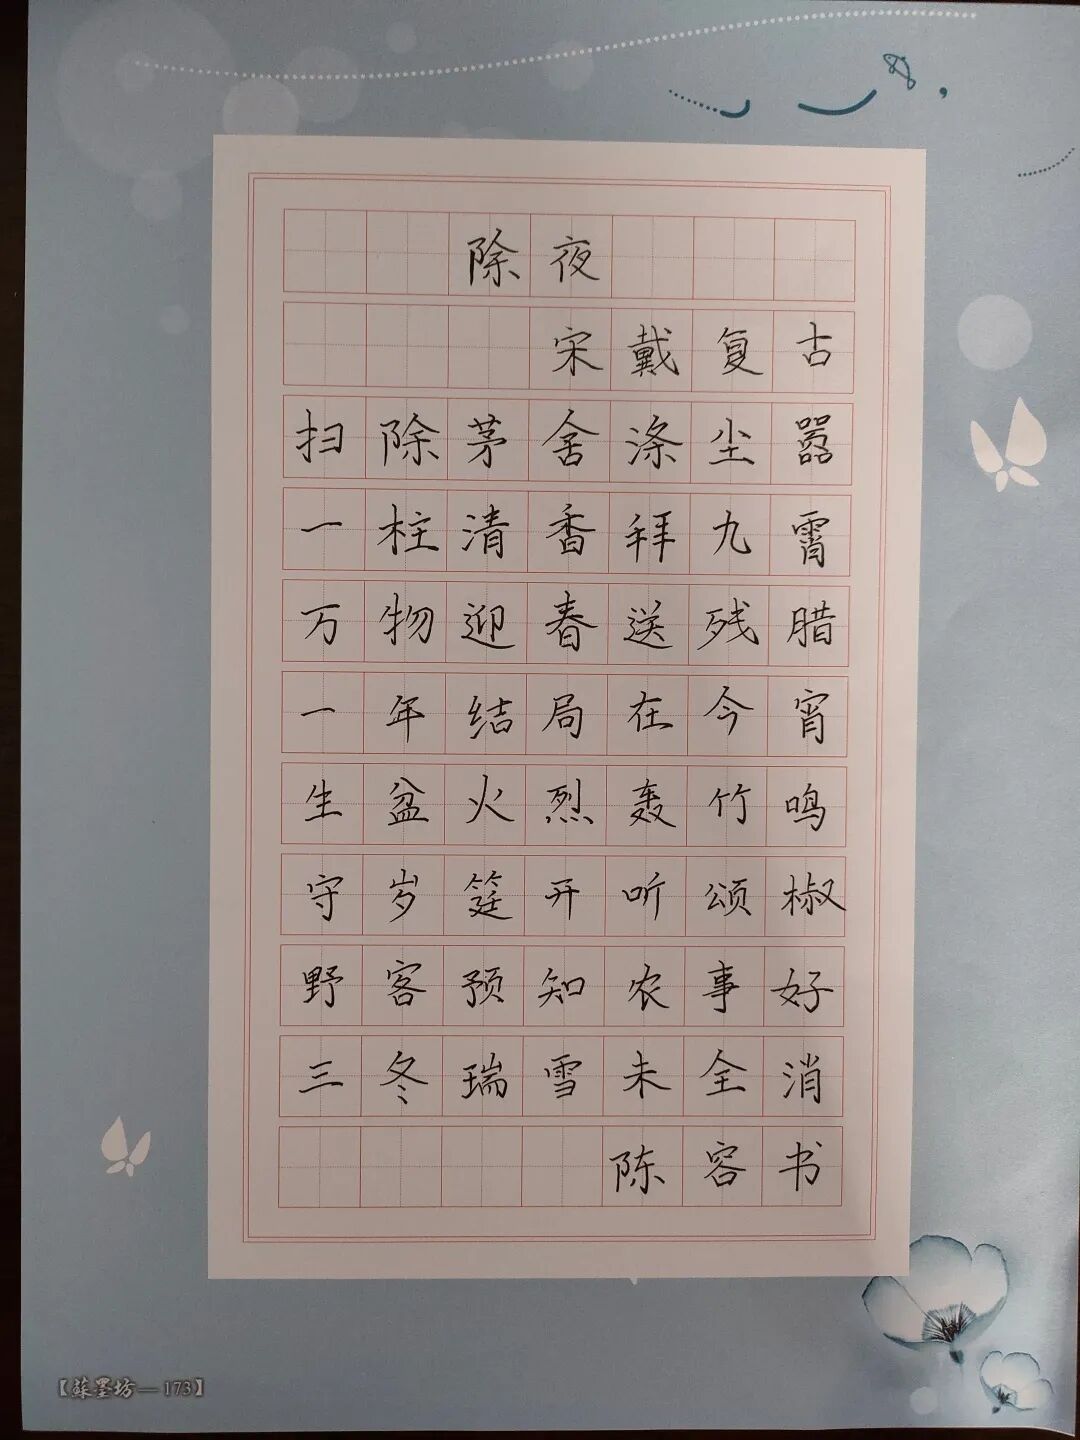 除夜
宋戴复古
扫除茅舍涤尘嚣
一柱清香拜九霄
万物迎春送残腊
一年结局在今宵
生盆火烈轰竹鸣
守岁筵开听颂椒
野客预知农事好
三冬瑞雪未全消
陈容书
【蘇墨坊—173】